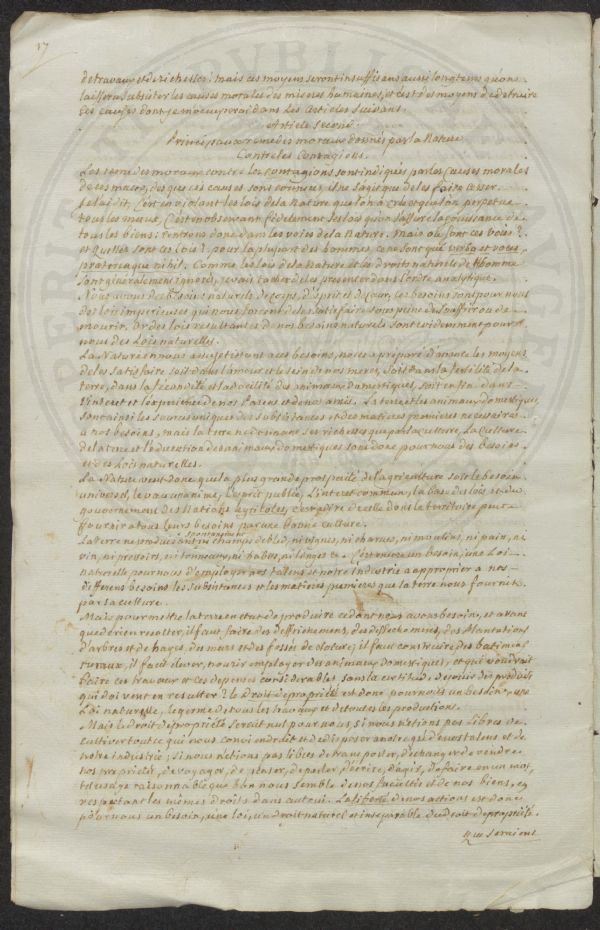 17
de travaux et de richesses: mais ces moyens seront insuffisans aussi longtems qu'on
laissera subsister les causes morales des miseres humaines, et ces des moyens de detruire
ces causes dont je m'occuperai dans les Articles Suivans.
Article Second.
Principaux remedes moraux donnés par la Nature
Contre les Contagions.
Les remedes moraux contre les contagions sont indiqués par les Causes morales
de ces maux, des que ces causes sont connues, il ne s'agit que de les faire cesser.
Je l'ai dit, C'est en violant les lois de la Nature que l'on a créé et que l'on perpetue
tous les maux. C'est en observant fidelement ses lois qu'on s'assure la jouissance de
tous les biens; rentrons donc dans les voies de la Nature. Mais où sont ces voies?
et Quelles sont ces Lois? pour la plupart des hommes ce ne sont que verba et voces
prætereaque nihil. Comme les lois de la Nature et les droits naturels de l'homme
sont generalement ignorés, je vais tacher de les presenter dans l'ordre analytique.
Nous avons des besoins naturels de corps, d'esprit et de cœur, les besoins sont pour nous
des lois imperieuses qui nous forcent de les satisfaire sous peine de souffrir ou de
mourir. Or des lois resultantes de nos besoins naturels sont evidemment pour
nous des Lois naturelles.
La Nature en nous assujetissant a ces besoins, nous a preparé d'avance les moyens
de les satisfaire soit dans l'amour et le sein de nos meres, soit dans la fertilité de la
terre, dans la fécundité et la docilité des animaux domestiques, soit enfin dans
l'interet et l'experience de nos Parens et de nos amis. La terre et les animaux domestiques
sont ainsi les sources uniques des subsistances et des matieres premieres necessaires
a nos besoins, mais la terre ne donnant ses richesses que par la culture, La Culture
de la terre et l'education des animaux domestiques sont donc pour nous des besoins
et des Lois naturelles.
La Nature veut donc que la plus grande prosperité de l'agriculture soit le besoin
universel, le vœu unanime, l'esprit public, L'interet commun, la base des lois et du
gouvernement des Nations agricoles, c'est a dire de celles dont le territoire peut
fournir a tous leurs besoins par une bonne culture.
spontanement
La terre ne produit ni champs de bled, ni vignes, ni charues, ni moulins, ni pain, ni
vin, ni pressoirs, ni tonneaux, ni habits, ni linges &c. C'est encore un besoin, une Loi
naturelle pour nous d'employer nos talens et notre industrie a approprier a nos
differens besoins les subsistances et les matieres premieres que la terre nous fournit
par sa culture.
Mais pour mettre la terre en etat de produire ce dont nous avons besoin, et avant
que d'en rien recolter, il faut faire des deffrichemens, des dessechemens, des Plantations
d'arbres et de hayes, des murs et des fossés de cloture, il faut construire des batimens
ruraux, il faut elever, nourir employer des animaux domestiques, et qui voudrait
faire ces travaux et ces depenses considerables, sans la certitude de jouir des produits
qui doivent en resulter? le Droit de propriété est donc pour nous un besoin, une
Loi naturelle, le germe de tous les travaux et de toutes les productions.
Mais le droit de propriété serait nul pour nous, si nous n'etions pas Libres de
cultiver tout ce qui nous convient et de disposer a notre gré de nos talens et de
notre industrie; si nous n'etions pas libres de transporter, d'echanger de vendre
nos proprietés, de voyager, de penser, de parler, d'ecrire, d'agir, de faire en un mot,
tel usage raisonnable que bon nous semble de nos facultés et de nos biens, en
respectant les memes droits dans autrui. La liberté de nos actions est donc
pour nous un besoin, une loi, un droit naturel et inseparable du droit de propriété.
Que seraient